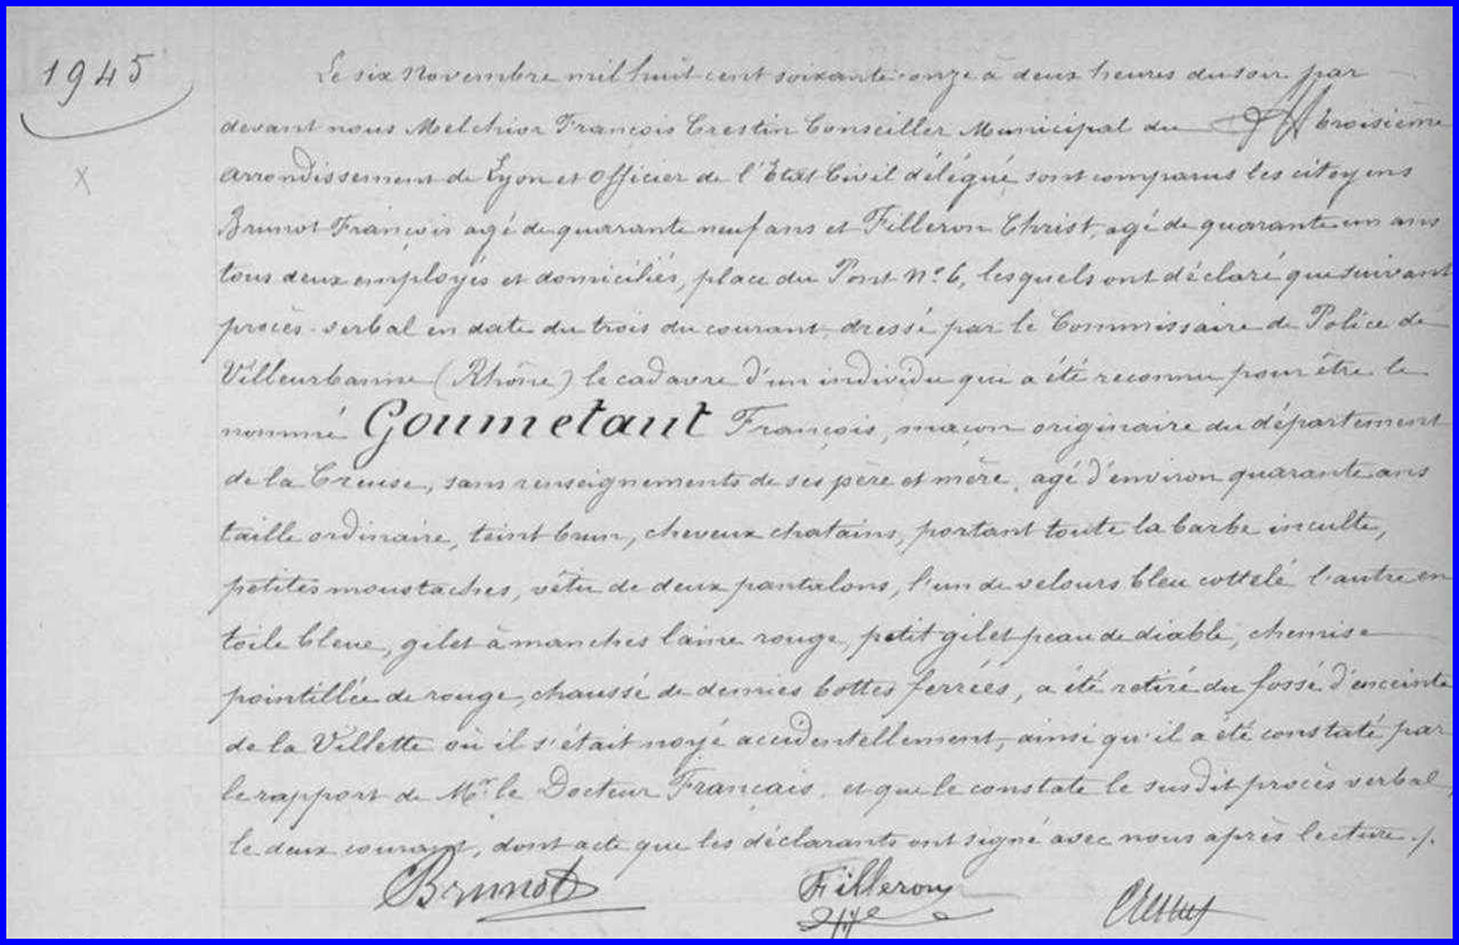 1945
Le six Novembre mil huit cent soixante onze à deux heures du soir par
devant nous Melchior François Crestin Conseiller Municipal du troisième
arrondissement de Lyon et Officier de l'Etat Civil délégué sont comparus les citoyens
Brunot François agé de quarante neuf ans et Filleron Christ. agé de quarante un ans
tous deux employés et domiciliés, place du Pont N° 6, lesquels ont déclaré que suivant
procès-verbal en date du trois du courant, dressé par le Commissaire de Police de
Villeurbanne (Rhône) le cadavre d'un individu qui a été reconnu pour être le
nommé Goumetaut François, maçon originaire du département
de la Creuse, sans renseignements de ses père et mère, agé d'environ quarante ans
taille ordinaire, teint brun, cheveux chatains, portant toute la barbe inculte,
petites moustaches, vêtu de deux pantalons, l'un de velours bleu cottelé l'autre en
toile bleue, gilet à manches laine rouge, petit gilet peau de diable, chemise
pointillée de rouge, chaussé de demies bottes ferrées, a été retiré du fossé d'enceinte
de la Villette où il s'était noyé accidentellement, ainsi qu'il a été constaté par
le rapport de Mr. le Docteur Français. et que le constate le susdit procès verbal,
le deux courant, dont acte que les déclarants ont signé avec nous après lecture ./.
Brunot Filleron Crestin